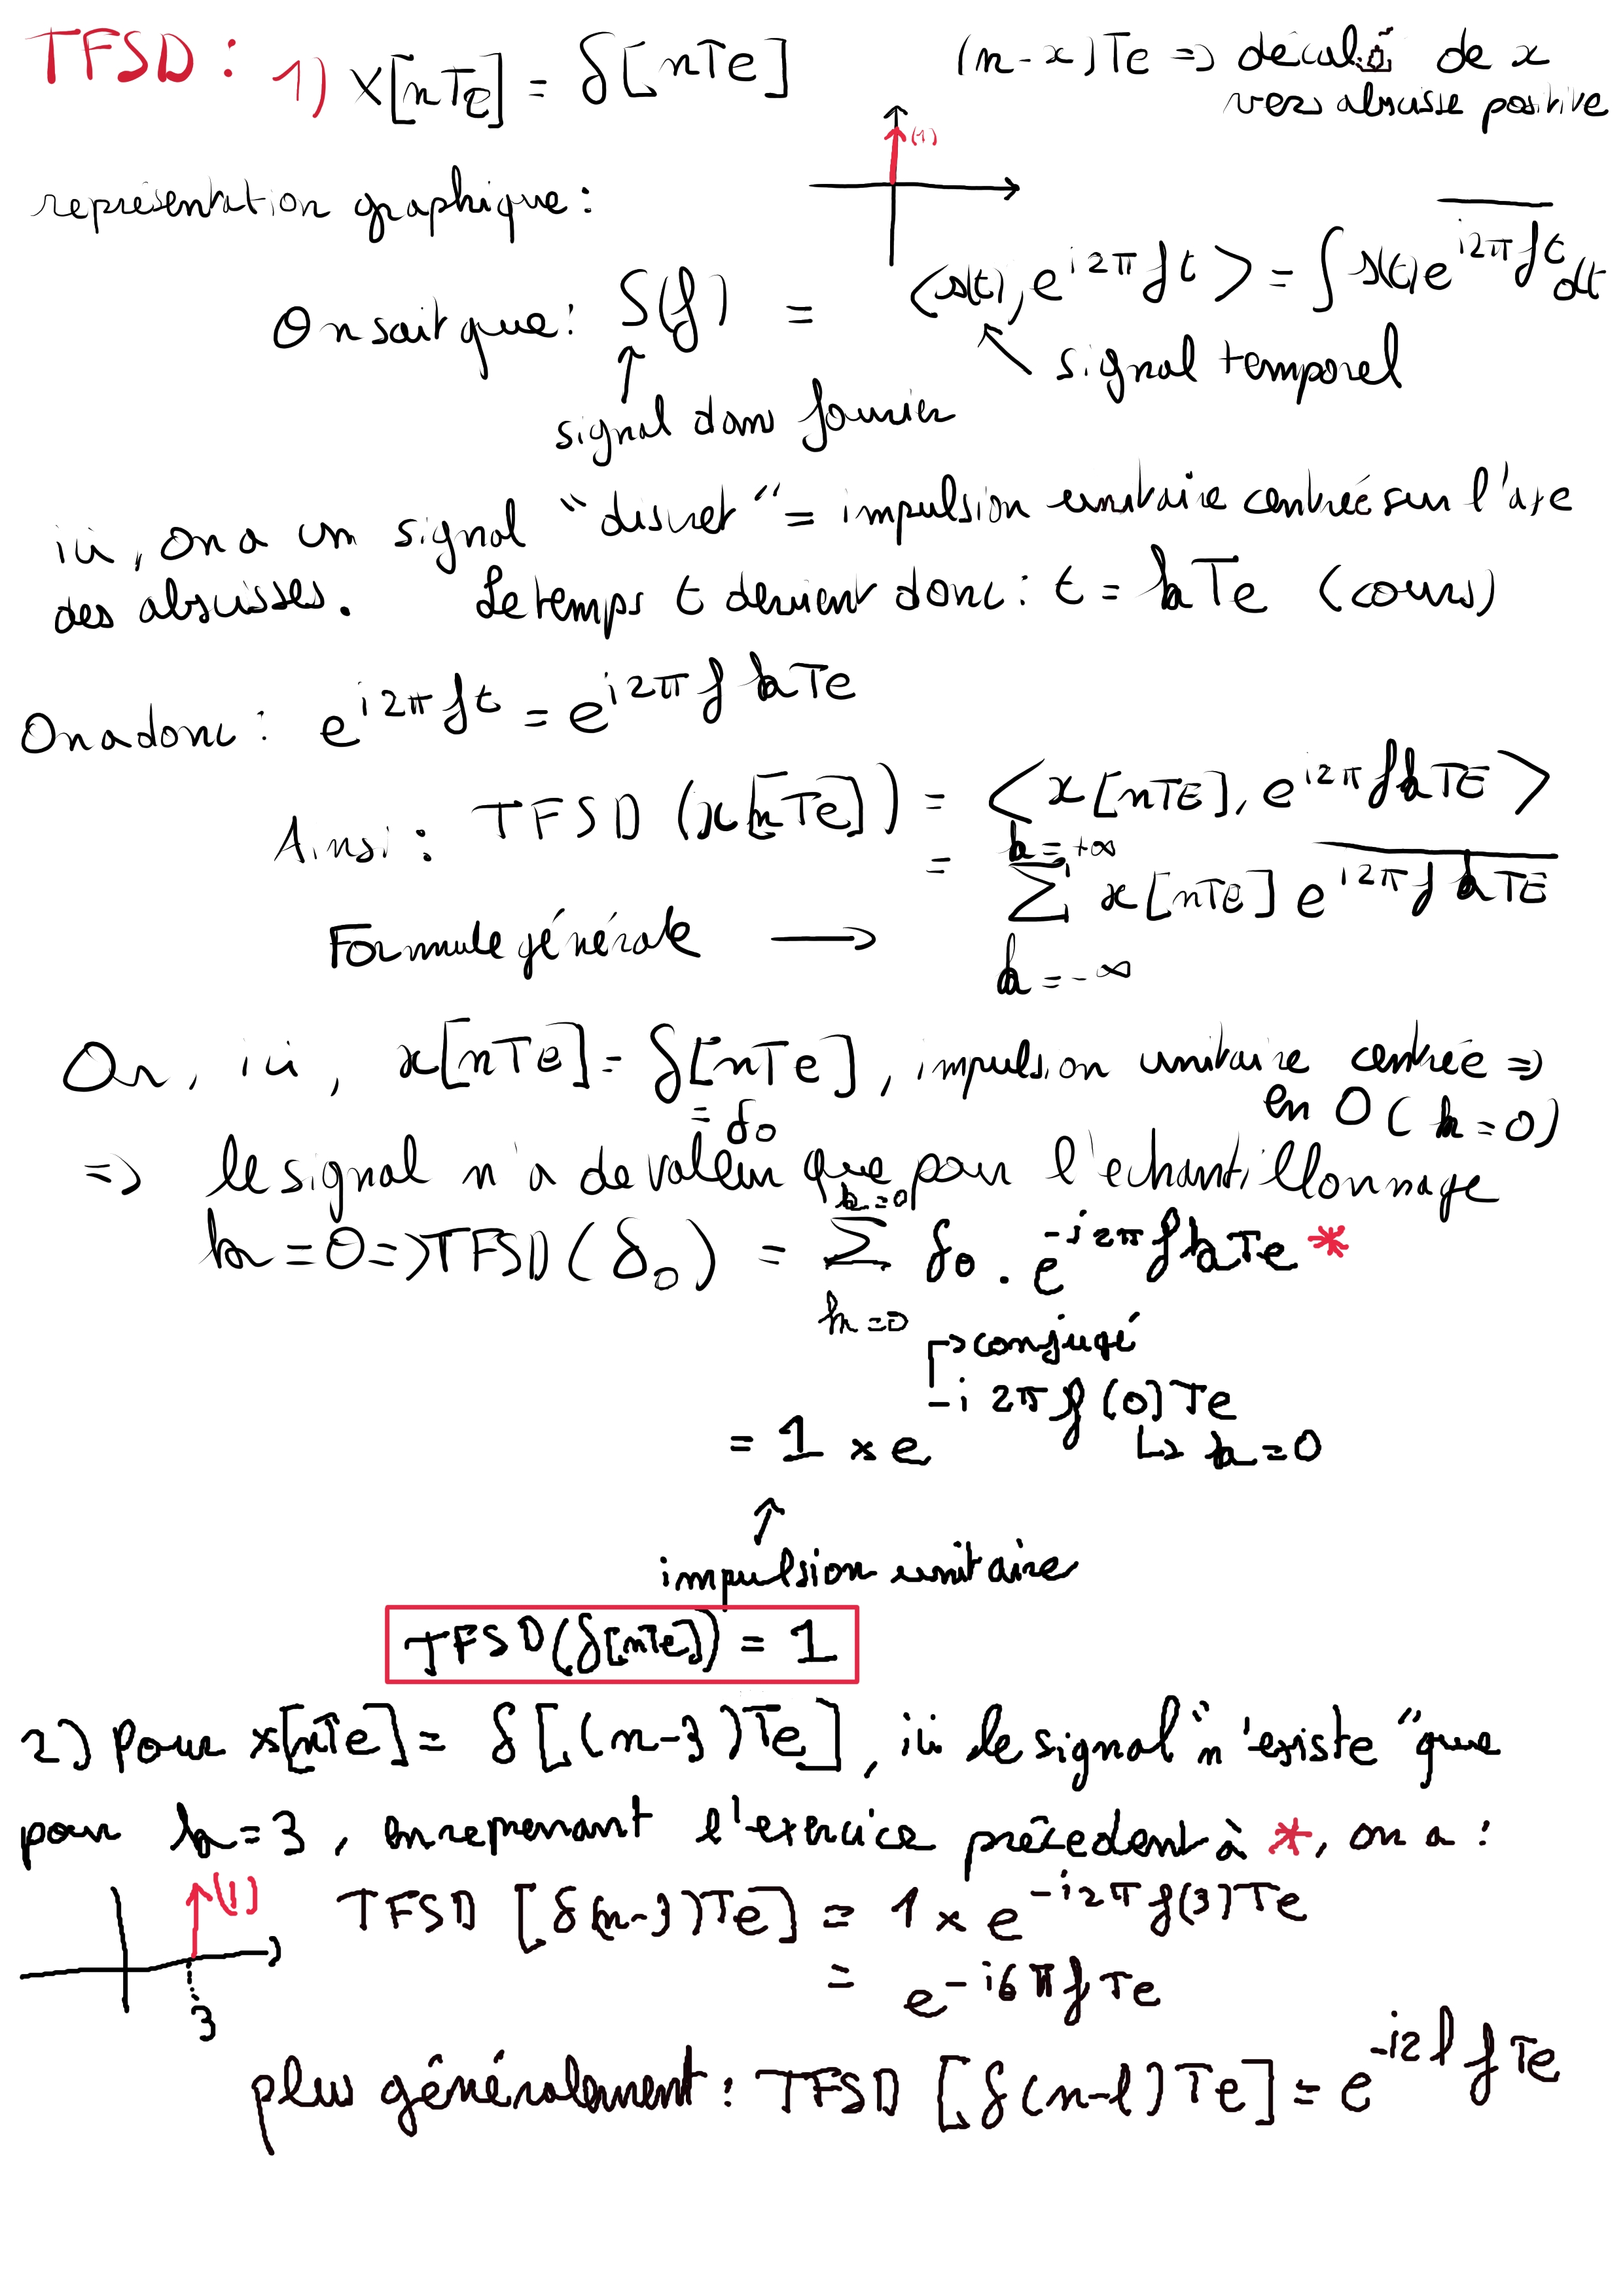 TFSD : 1) X[nTe] = δ[nTe]
(n-x)Te => décalé de x
vers abscisse positive
(1)
représentation graphique :
On sait que : S(f) = <s(t), e^{i2πft}> = ∫ s(t) \overline{e^{i2πft}} dt
signal temporel
signal dans fourier
ici, on a un signal "discret" = impulsion unitaire centrée sur l'axe
des abscisses. Le temps t devient donc : t = kTe (cours)
On a donc : e^{i2πft} = e^{i2πfkTe}
Ainsi : TFSD (x[nTe]) = <x[nTE], e^{i2πfkTE}>
= \sum_{k=-∞}^{k=+∞} x[nTE] \overline{e^{i2πfkTE}}
Formule générale →
Or, ici, x[nTe] = δ[nTe], impulsion unitaire centrée =>
= δ0
en 0 (k=0)
=> le signal n'a de valeur que pour l'echantillonnage
k=0 => TFSD(δ0) = \sum_{k=0}^{k=0} δ0 . e^{-i2πfkTe} *
↳ conjugé
= 1 × e^{-i2πf(0)Te}
↳ k=0
↑
impulsion unitaire
TFSD(δ[nTe]) = 1
2) Pour x[nTe] = δ[(n-3)Te], ici le signal "n'existe" que
pour k=3, en reprenant l'exercice précedent à *, on a :
(1)
TFSD [δ(n-3)Te] = 1 × e^{-i2πf(3)Te}
= e^{-i6πfTe}
3
plus généralement : TFSD [δ(n-l)Te] = e^{-i2lfTe}